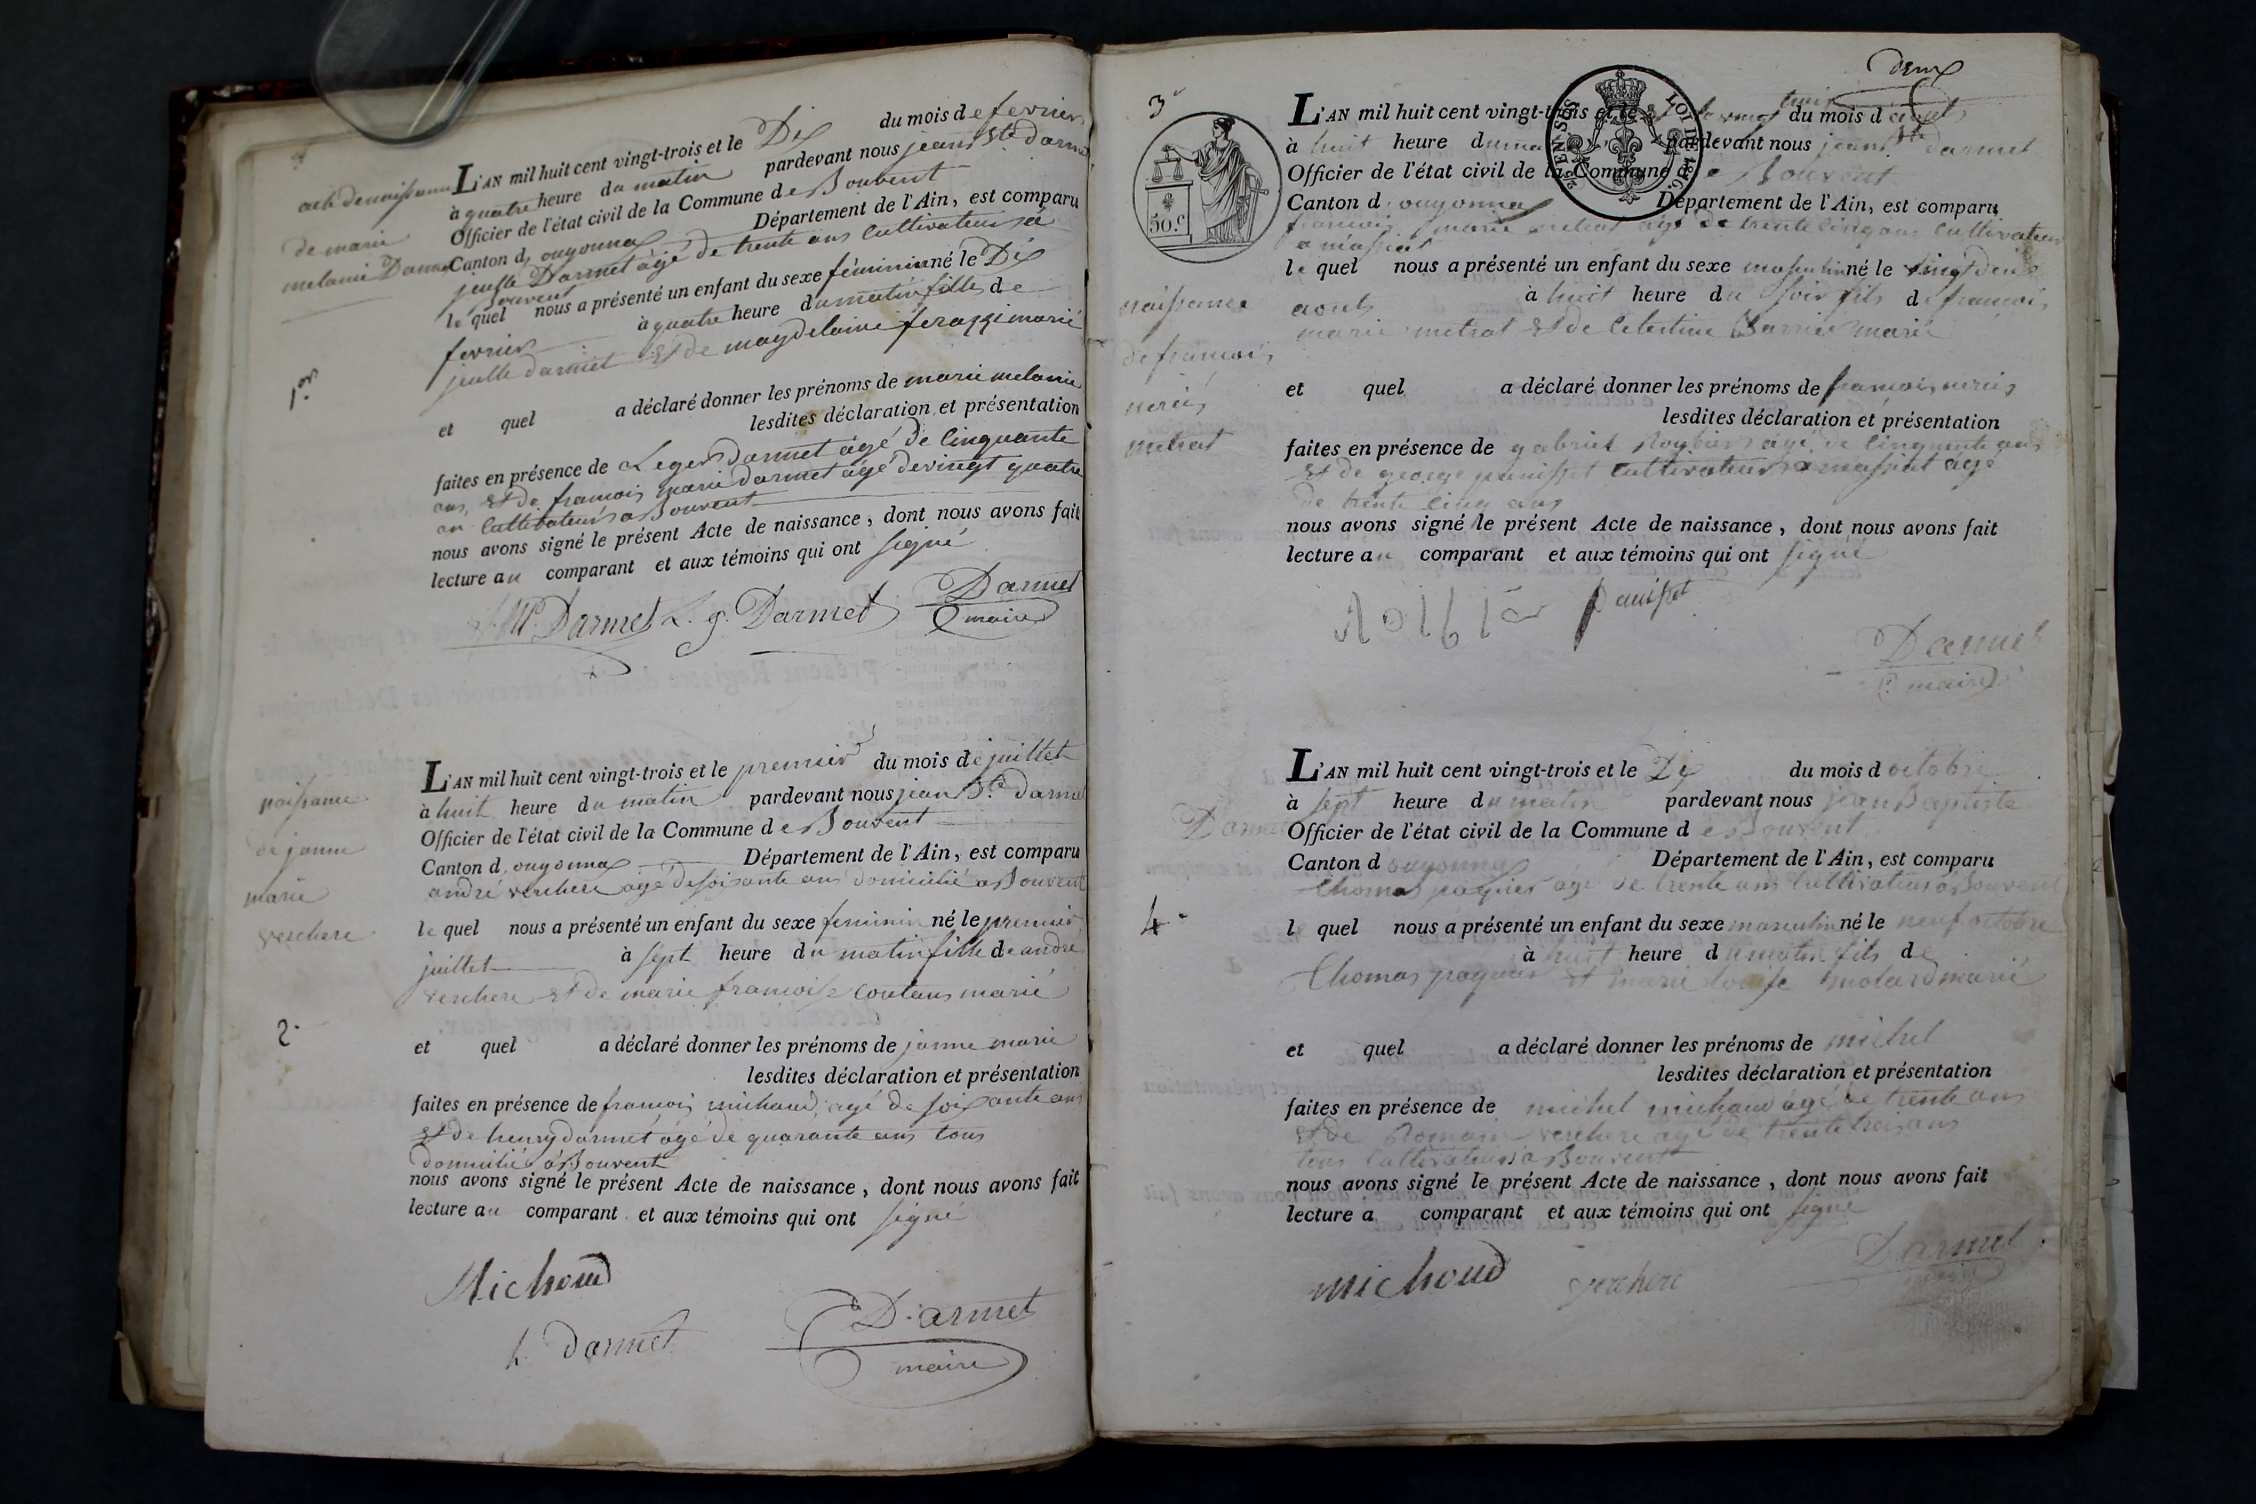 acte de naissance
de marie
melanie Darmet
1er
L'AN mil huit cent vingt-trois et le Dix du mois de fevrier
à quatre heure du matin pardevant nous jean Bte darmet
Officier de l'état civil de la Commune de Bouvent
Canton d'ouyonnax Département de l'Ain, est comparu
Darmet âgé de trente ans Cultivateur à
Bouvent
le quel nous a présenté un enfant du sexe féminin né le Dix
fevrier à quatre heure du matin fille de
darmet et de magdelaine ferazzi marié
et quel a déclaré donner les prénoms de marie melanie
lesdites déclaration et présentation
faites en présence de Leger darmet âgé de Cinquante
ans, et de francois marie darmet âgé de vingt quatre
an Cultivateurs a Bouvent
nous avons signé le présent Acte de naissance, dont nous avons fait
lecture au comparant et aux témoins qui ont signé
f. M. Darmet L. g. Darmet Darmet
maire
naissance
de janne
marie
verchere
2.
L'AN mil huit cent vingt-trois et le premier du mois de juillet
à huit heure du matin pardevant nous jean Bte darmet
Officier de l'état civil de la Commune de Bouvent
Canton d'ouyonnax Département de l'Ain, est comparu
andré verchere âgé de soixante ans domicilié a Bouvent
le quel nous a présenté un enfant du sexe feminin né le premier
juillet à sept heure du matin fille de andré
verchere et de marie francoise coutans marié
et quel a déclaré donner les prénoms de janne marie
lesdites déclaration et présentation
faites en présence de francois michaud, agé de soixante ans
et de henry darmet âgé de quarante ans tous
domicilié a Bouvent
nous avons signé le présent Acte de naissance, dont nous avons fait
lecture au comparant et aux témoins qui ont signé
Michoud
h. Darmet
D. armet
maire
deux
3
50.C
LOI DE 1816.
naissance
de francois
metrat
L'AN mil huit cent vingt-trois et le vingt trois du mois d'aout
à huit heure du pardevant nous jean Bte darmet
Officier de l'état civil de la Commune de Bouvent
Canton d'ouyonnax Département de l'Ain, est comparu
francois marie metrat agé de trente cinq ans Cultivateur
a massiat
le quel nous a présenté un enfant du sexe masculin né le vingt deux
aout à huit heure du soir fils de francois
marie metrat et de Celestine marié
et quel a déclaré donner les prénoms de francois
lesdites déclaration et présentation
faites en présence de gabriel agé de Cinquante ans
et de george panisset Cultivateurs a massiat agé
de trente cinq ans
nous avons signé le présent Acte de naissance, dont nous avons fait
lecture au comparant et aux témoins qui ont signé
panisset
Darmet
maire
4.
L'AN mil huit cent vingt-trois et le Dix du mois d octobre
à sept heure du matin pardevant nous jean Baptiste
Darmet Officier de l'état civil de la Commune de Bouvent
Canton d ouyonnax Département de l'Ain, est comparu
Thomas agé de trente ans Cultivateur a Bouvent
l quel nous a présenté un enfant du sexe masculin né le neuf octobre
à huit heure du matin fils de
Thomas et marie louise molard marié
et quel a déclaré donner les prénoms de michel
lesdites déclaration et présentation
faites en présence de michel michaud agé de trente ans
et de Romain verchere agé de trente trois ans
tous Cultivateurs a Bouvent
nous avons signé le présent Acte de naissance, dont nous avons fait
lecture a comparant et aux témoins qui ont signé
michoud verchere Darmet